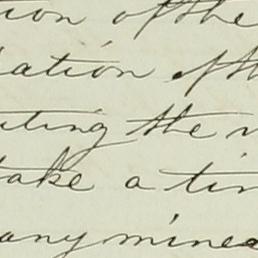 ion of the
ation of th
uting the
take a tim
any mine